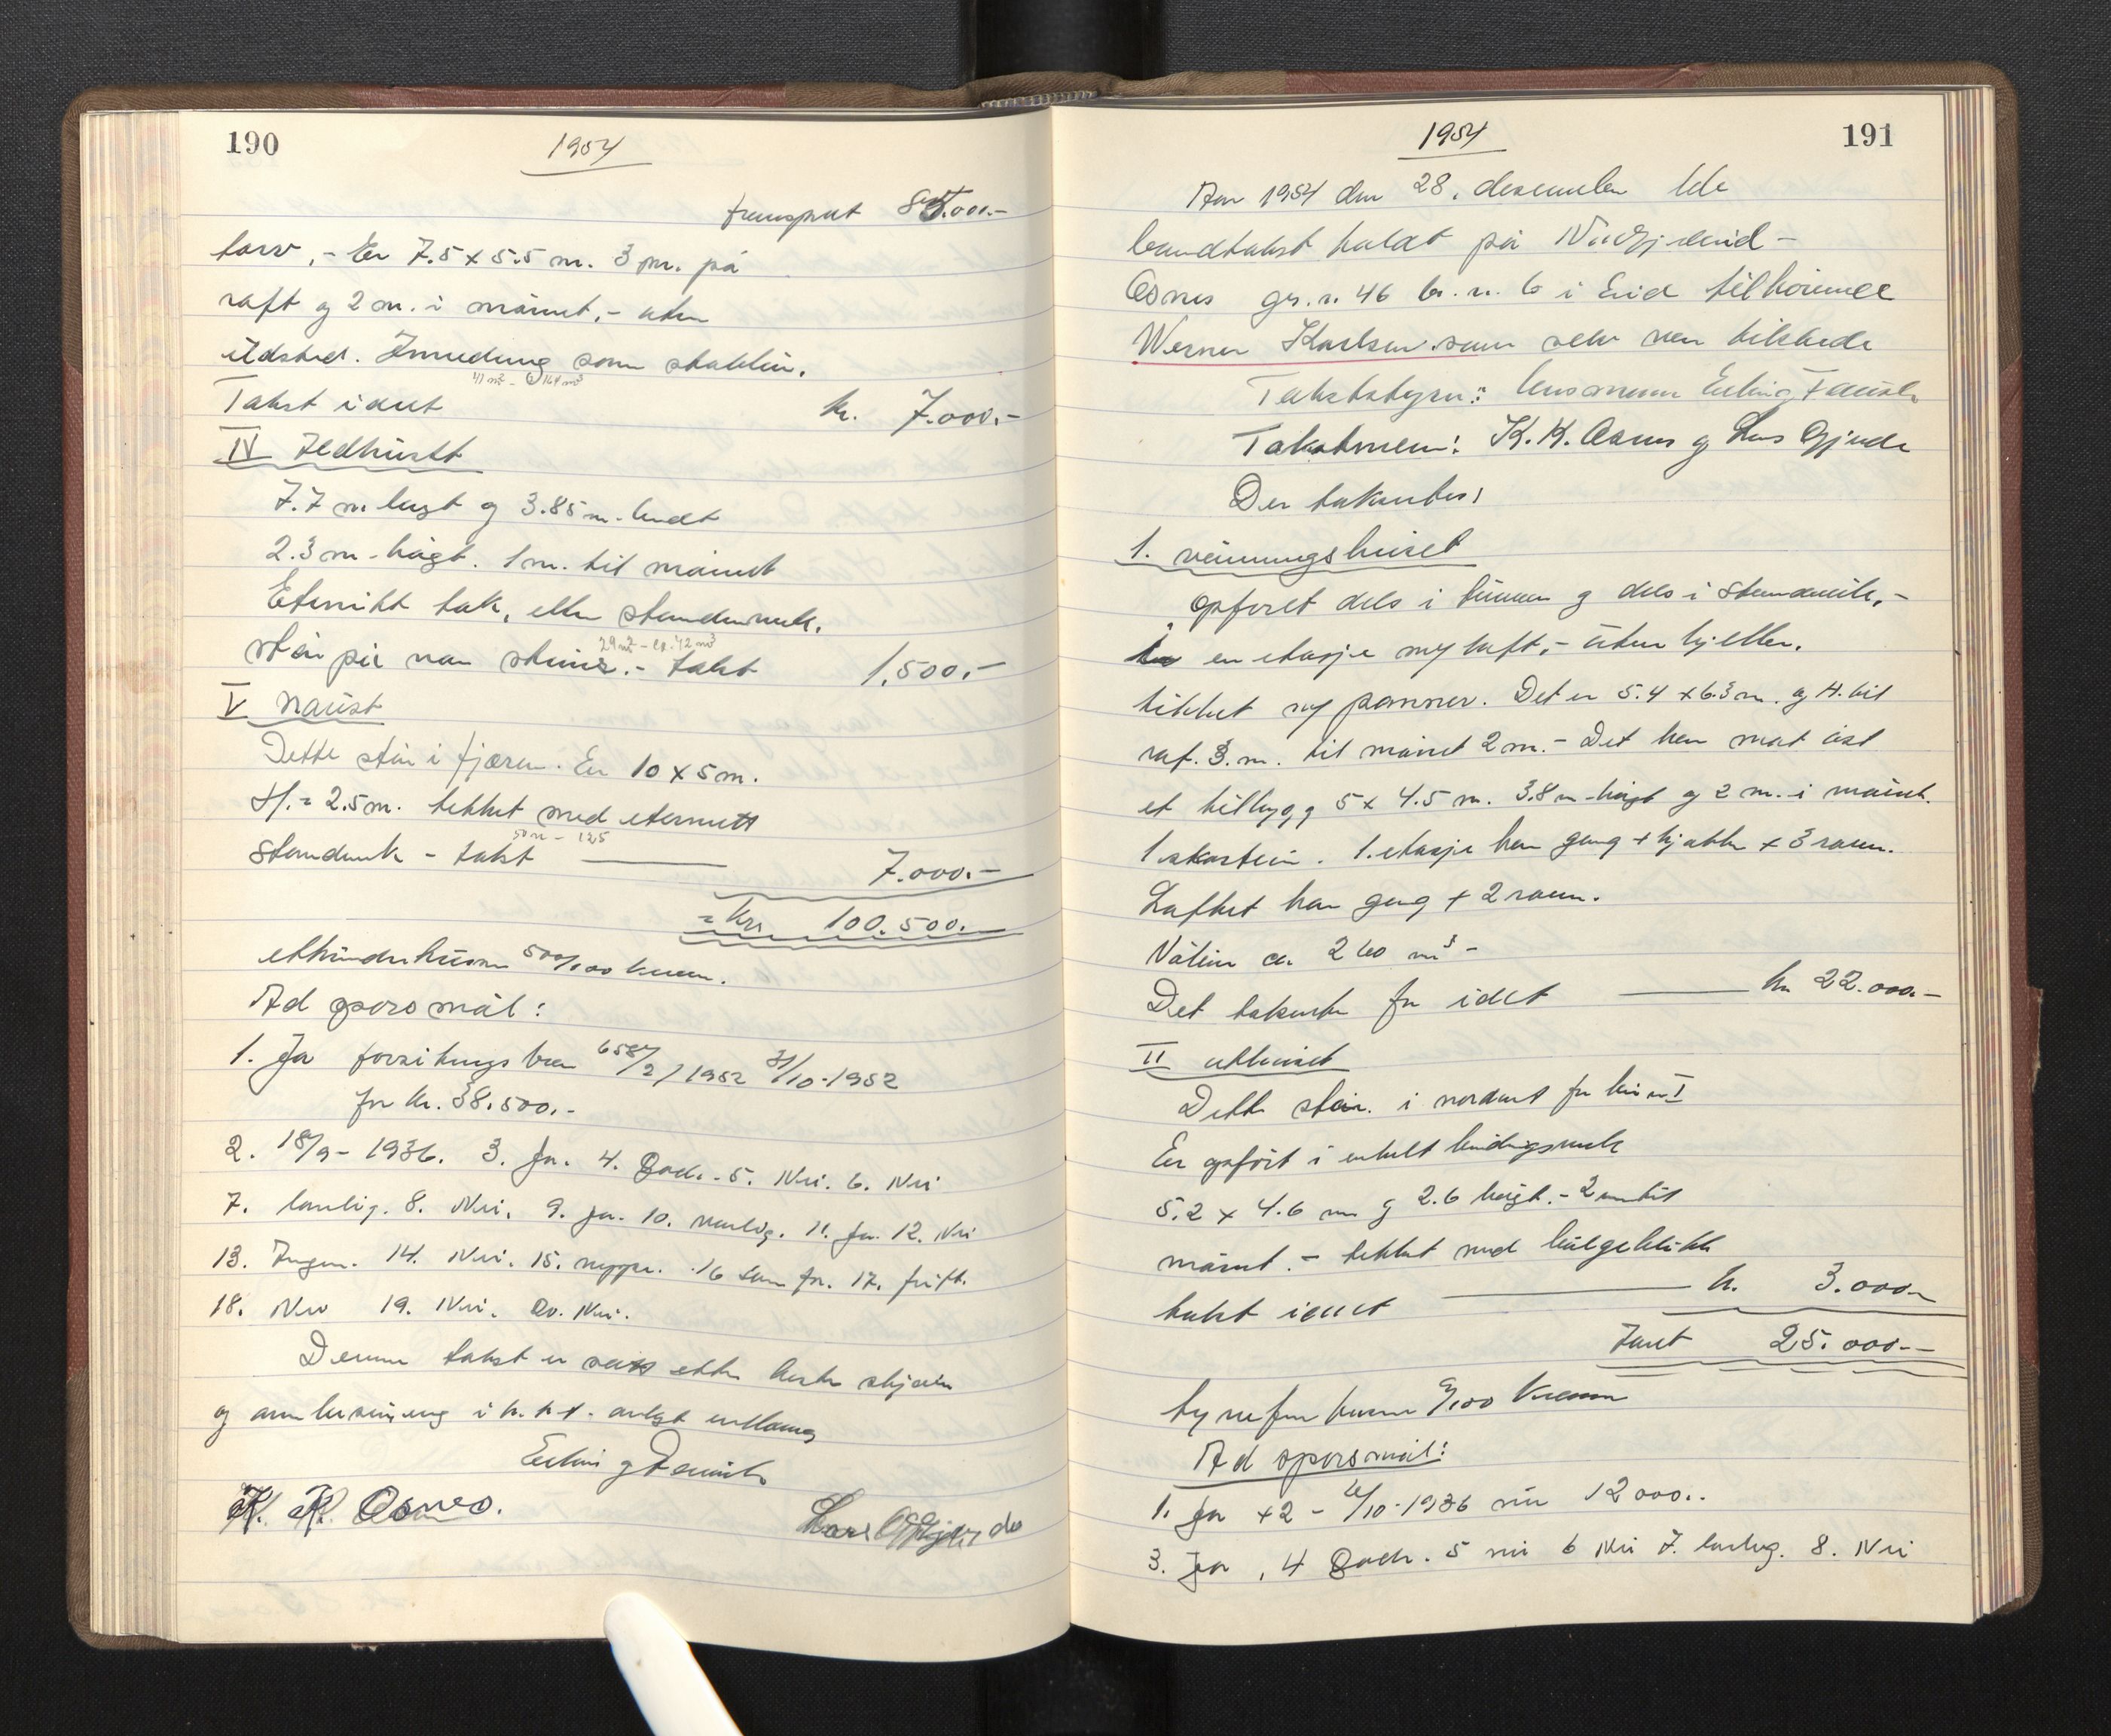 190
1954
transport 85.000.-
torv, - Er 7.5 x 5.5 m. 3 m. på
raft og 2 m. i mønet, - uten
ildsted. Innredning som stabbur.
41 m² - 164 m³
Takst i alt kr. 7.000.-
IV Vedhuset
7.7 m langt og 3.85 m. bredt
2.3 m - høgt. 1 m. til mønet
Eternitt tak, eller stenderverk.
29 m² - ca. 42 m³
Står på steiner. - takst 1.500.-
V Naust
Dette står i fjæren. Er 10 x 5 m.
H. = 2.5 m. tekket med eternitt
50 m - 125
Stenderverk - takst 7.000.-
= kr. 100.500.-
ethundrehusen 500/100 kroner.
Ad spørsmål:
1. Ja forsikringsbrev 6587/2/1952 31/10-1952
for kr. 38.500.-
2. 18/9 - 1936. 3. Ja. 4. Godt. 5. Nei. 6. Nei
7. lovlig. 8. Nei. 9. Ja. 10. vanlig. 11. Ja. 12. Nei
13. Ingen. 14. Nei. 15. 16 som før. 17. frift.
18. Nei 19. Nei. 20. Nei.
Denne takst er satt etter beste skjønn
og overbevisning i h. h. t. avlagt
Erling
K. K. Osnes. Lars Gjerde
1954
191
Aar 1954 den 28. desember ble
branntakst holdt på
Osnes gr. n. 46 br. n. 6 i Eid tilhørende
Werner Karlsen som selv var tilstede
Takstbestyrer: lensmann Erling
Takstmenn: K. K. Osnes og Lars Gjerde
Der takseres:
1. våningshuset
Opføret dels i tømmer og dels i stenderverk, -
en etasje m/ loft, - uten kjeller.
tekket m/ panner. Det er 5.4 x 6.3 m. og H. til
raf. 3. m. til mønet 2 m. - Det har mot øst
et tilbygg 5 x 4.5 m. 3.8 m - høgt og 2 m. i mønet.
1 skorstein. 1. etasje har gang + kjøkken + 3 roum.
Loftet har gang + 2 roum.
Volum ca. 260 m³ -
Det takseres for i alt kr. 22.000.-
II uthuset
Dette står i nordvest for hus n I
Er opført i enkelt bindingsverk
5.2 x 4.6 m og 2.6 høgt. - 2 m til
mønet. - tekket med bølgeblikk
takst i alt kr. 3.000.-
I alt 25.000.-
tyvefem tusen 0/100 kroner
Ad spørsmål:
1. Ja + 2 - 6/10-1936 nr 12000..
3. Ja, 4 Godt. 5 nei 6 Nei 7. lovlig. 8. Nei